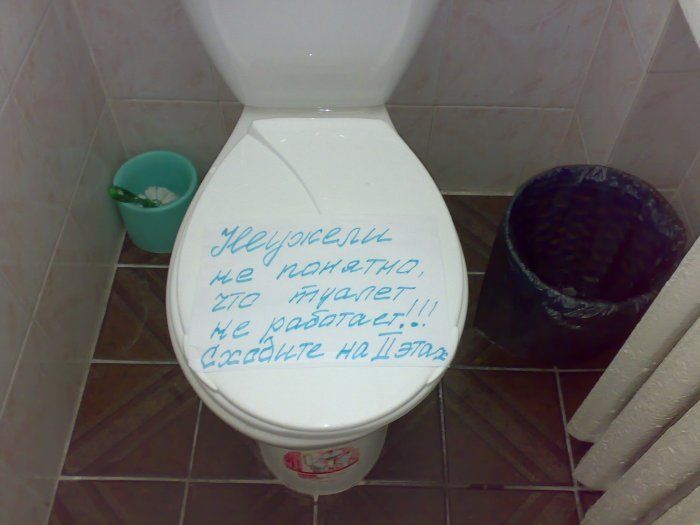 Неужели
не понятно,
что туалет
не работает!!!
Сходите на II этаж